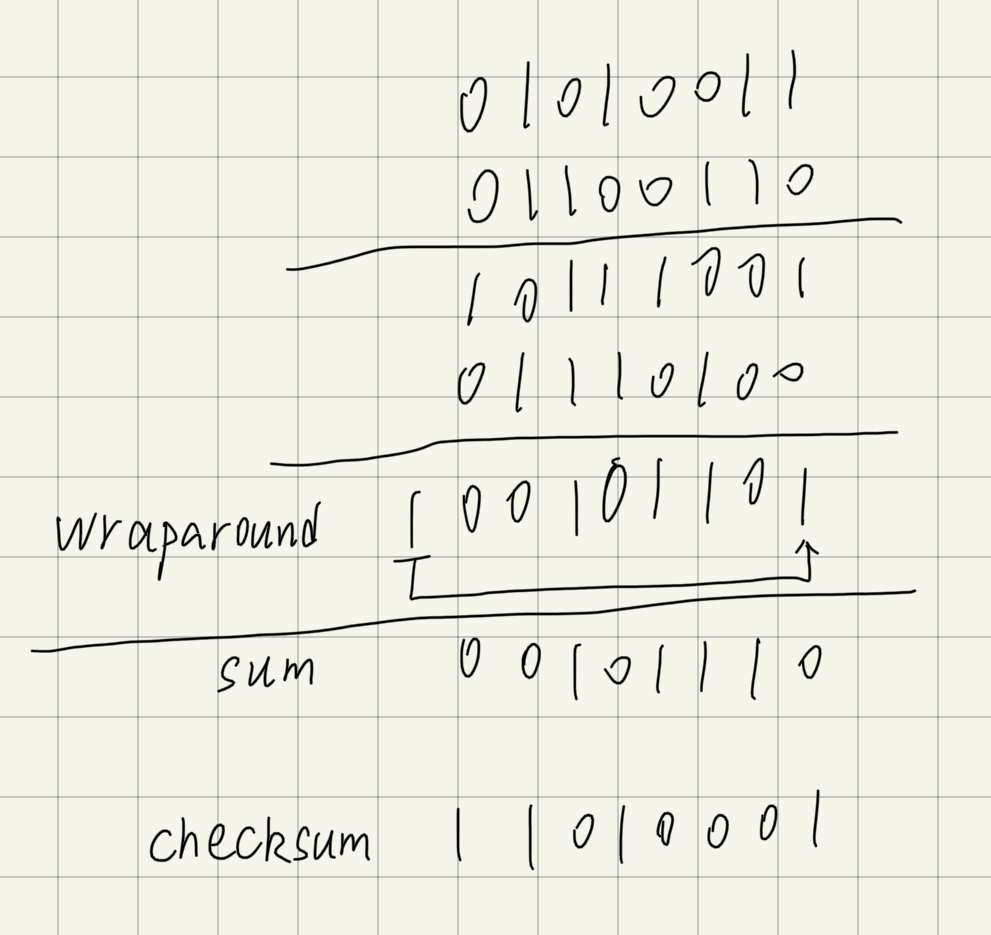 01010011
01100110
10111001
01110100
wraparound 100101101
sum 00101110
checksum 11010001